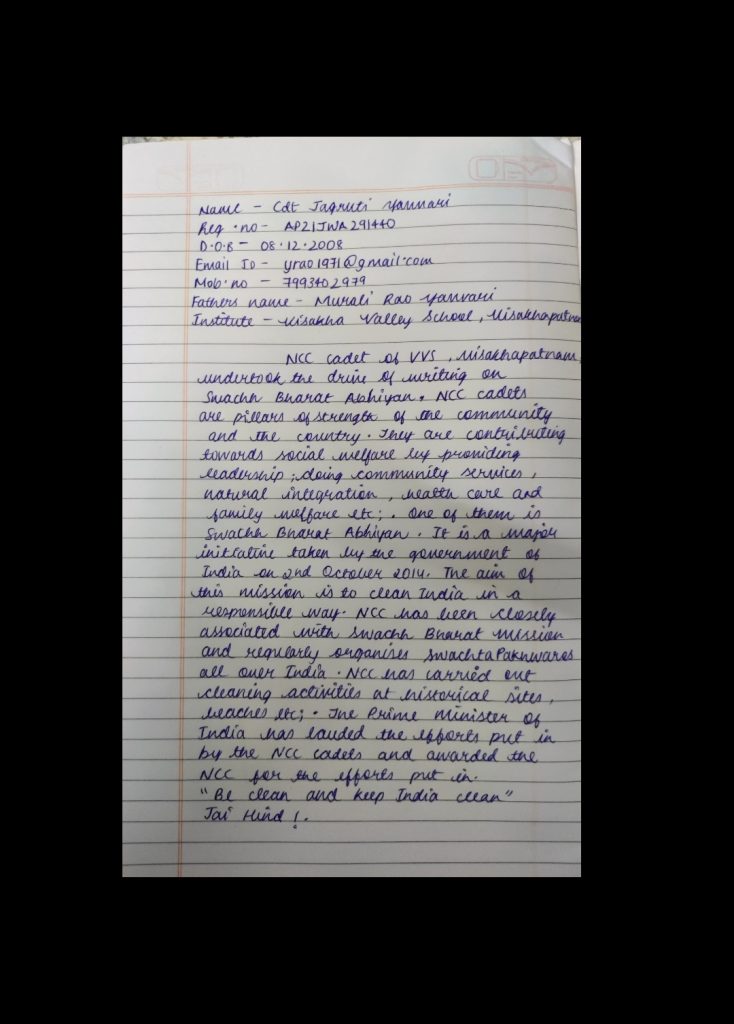 Name - Cdt Jagruti Yannari
Reg. no - AP21JWA291440
D.O.B - 08.12.2008
Email ID - yrao1971@gmail.com
Mob. no - 7993402979
Fathers name - Murali Rao Yanvari
Institute - Visakha Valley School, Visakhapatnam
NCC cadet of VVS, Visakhapatnam,
undertook the drive of writing on
Swachh Bharat Abhiyan. NCC cadets
are pillars of strength of the community
and the country. They are contributing
towards social welfare by providing
leadership; doing community services,
natural integration, health care and
family welfare etc;. One of them is
Swachh Bharat Abhiyan. It is a major
initiative taken by the government of
India on 2nd October 2014. The aim of
this mission is to clean India in a
responsible way. NCC has been closely
associated with Swachh Bharat Mission
and regularly organises Swachta Pakhwaras
all over India. NCC has carried out
cleaning activities at historical sites,
beaches etc;. The Prime Minister of
India has lauded the efforts put in
by the NCC cadets and awarded the
NCC for the efforts put in.
"Be clean and keep India clean"
Jai Hind!.